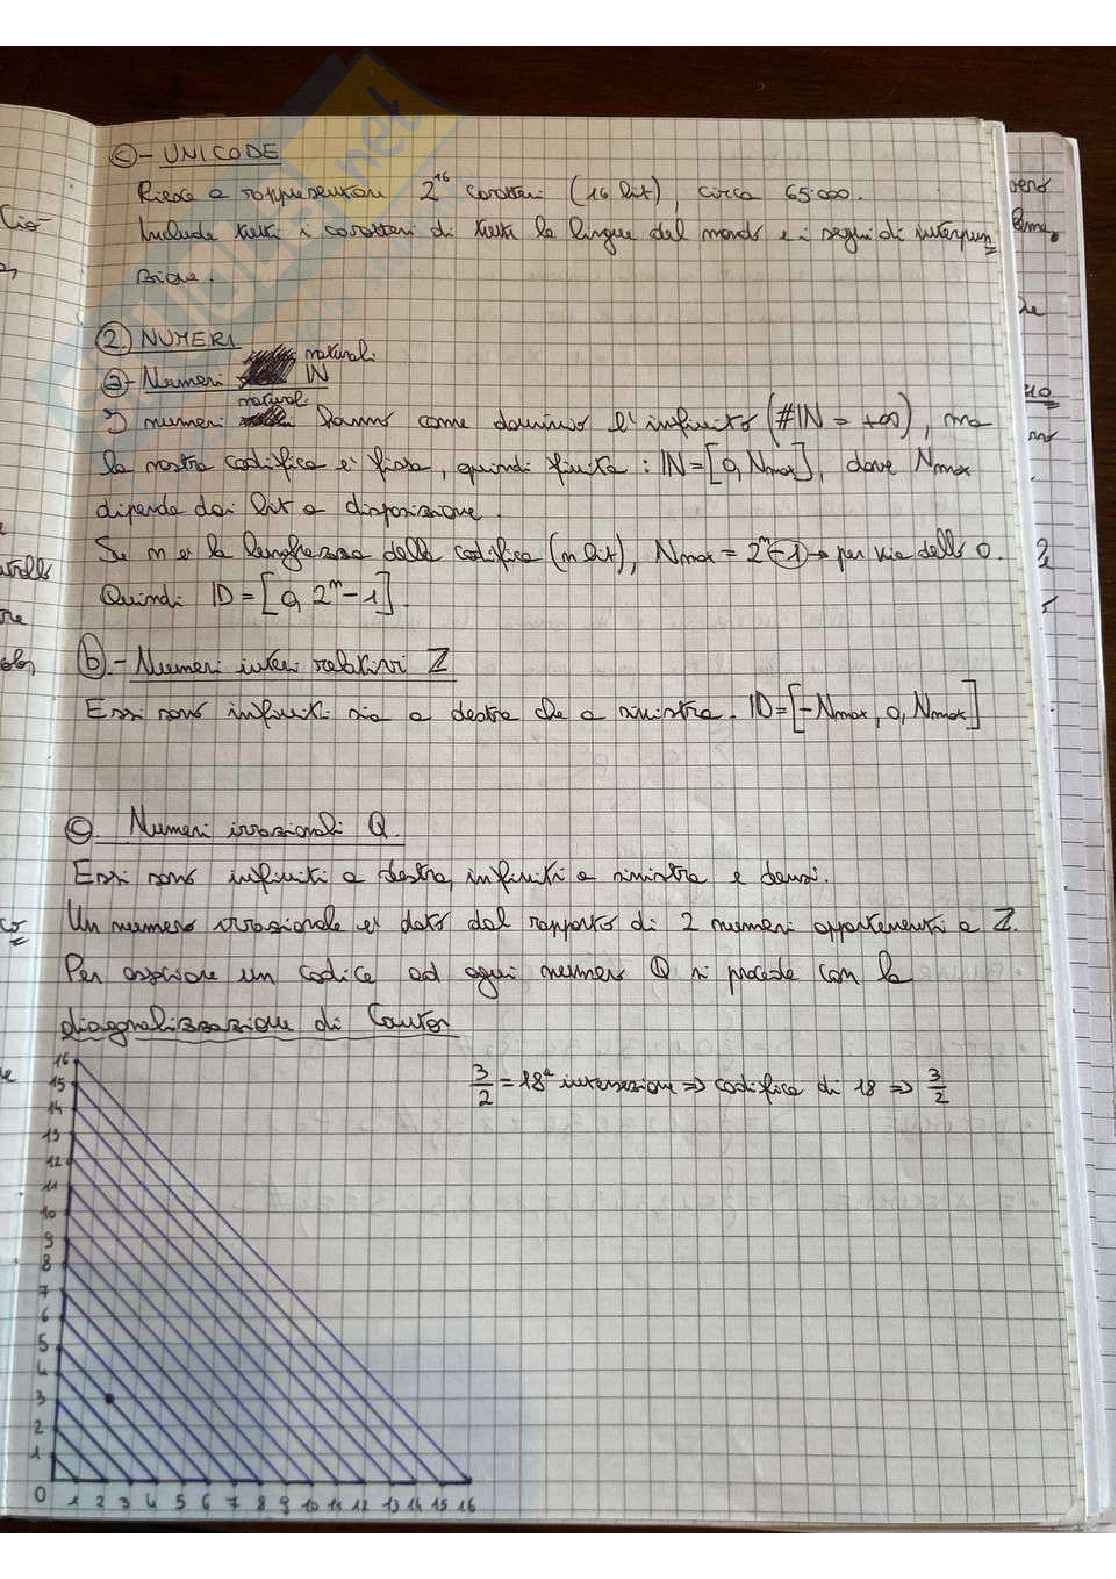 c)- UNICODE
Riesce a rappresentare 2^16 caratteri (16 bit), circa 65.000.
Include tutti i caratteri di tutte le lingue del mondo e i segni di interpun=
zione.
2. NUMERI
naturali
a)- Numeri IN
naturali
I numeri hanno come dominio l'infinito (#IN = +∞), ma
la nostra codifica e' fissa, quindi finita : IN = [0, Nmax], dove Nmax
dipende dai bit a disposizione.
Se n e' la lunghezza della codifica (n bit), Nmax = 2^n - 1 → per via dello 0.
Quindi ID = [0, 2^n - 1].
b).- Numeri interi relativi Z
Essi sono infiniti sia a destra che a sinistra. ID = [-Nmax, 0, Nmax]
c). Numeri irrazionali Q.
Essi sono infiniti a destra, infiniti a sinistra e densi.
Un numero irrazionale e' dato dal rapporto di 2 numeri appartenenti a Z.
Per associare un codice ad ogni numero Q si procede con la
diagonalizzazione di Cantor
3/2 = 18ª intersezione ⇒ codifica di 18 ⇒ 3/2
16
15
14
13
12
11
10
9
8
7
6
5
4
3
2
1
0 1 2 3 4 5 6 7 8 9 10 11 12 13 14 15 16